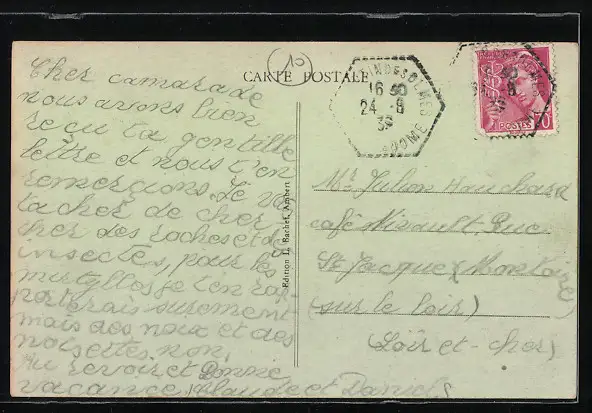 10
CARTE POSTALE
Cher camarade
nous avons bien
reçu ta gentille
lettre et nous t'en
remercions. Je vai
tacher de cher
cher des roches et des
insectes, pour les
myrtylles je t'en rap-
porterais surement
mais des noix et des
noisettes non.
Au revoir et bonne
vacance, Claude et Daniels
Edition L. Bachel, Ambert
16 30
24 - 8
39
DOME
POSTES
Mr Julien
café Rue
St Jacques
(sur le loir)
(Loir et cher)